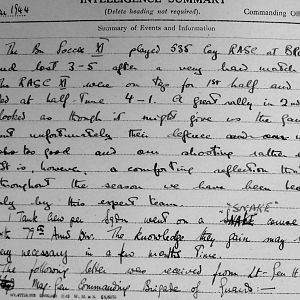 INTELLIGENCE SUMMARY
(Delete heading not required).
Commanding Offic
1944
Summary of Events and Information
The Bn Soccer XI played 535 Coy RASC at
and lost 3-5 after a very hard match
The RASC XI were on top for 1st half and
led at half time 4-1. A great rally in 2nd
looked as though it might give us the game
but unfortunately their defence and our
too good and our shooting rather
It is however a comforting reflection that
throughout the season we have been
only by this expert team.
"SNAKE"
1 Tank crew per Sqdn went on a course
with 79th Armd Div. The knowledge they gain may
very necessary in a few months time.
The following letter was received from Lt-Gen H
Maj-Gen Commanding Brigade of Guards:—